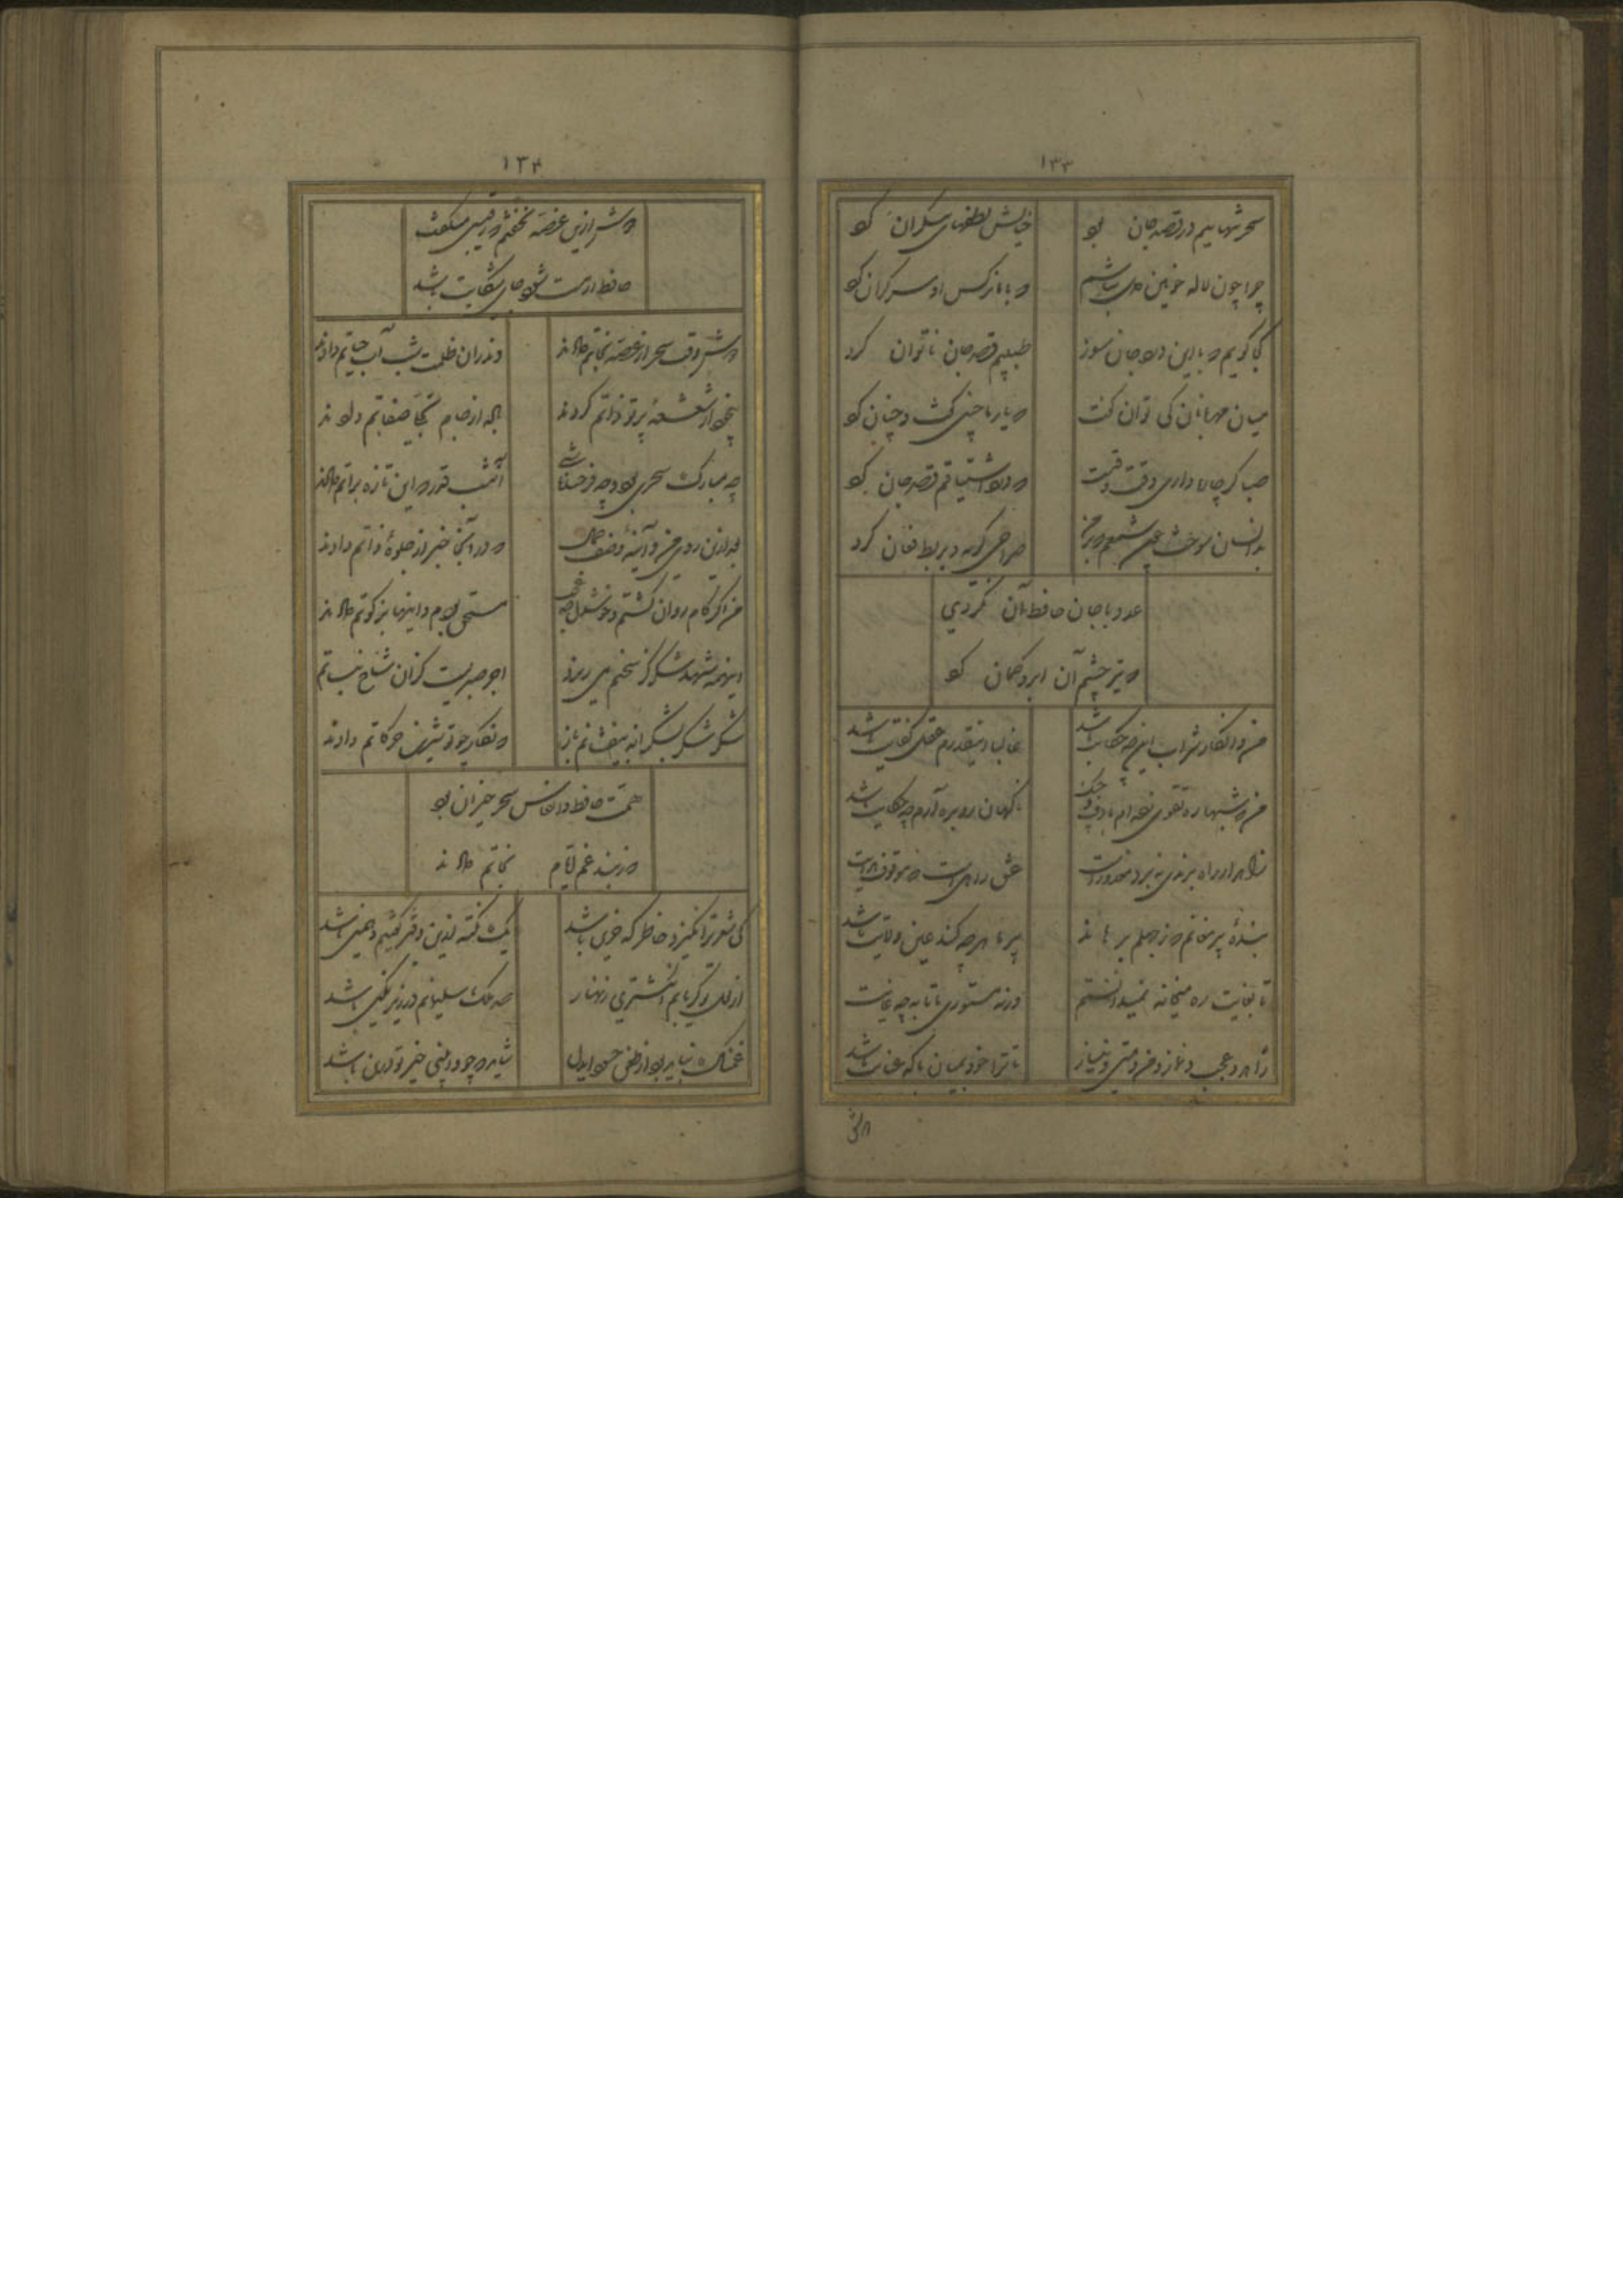 ۱۳۳
سحر تنهاییم در قصد جان بود
خیالش لطفهای بیکران کرد
چرا چون لاله خونین دل نباشم
که با ما نرکس او سر کران کرد
کجا کویم که با این درد جان سوز
طبیبم قصد جان ناتوان کرد
میان مهربانان کی توان کفت
که یار ما چنین کفت و چنان کرد
صبا کر چاره داری وقت وقتست
که درد اشتیاقم قصد جان کرد
بدانسان سوخت چون شمعم که بر من
صراحی کریه و بربط فغان کرد
عدو با جان حافظ آن نکردی
که تیر چشم آن ابرو کمان کرد
من و انکار شراب این چه حکایت باشد
غالبا اینقدرم عقل کفایت باشد
من که شبها ره تقوی زده‌ام با دف و چنک
ناکهان رو بره آرم چه حکایت باشد
زاهد ار راه برندی نبرد معذورست
عشق کاریست که موقوف هدایت
بنده پیر مغانم که ز جهلم برهاند
پیر ما هرچه کند عین ولایت باشد
تا بغایت ره میخانه نمیدانستم
ورنه مستوری ما تا بچه غایت
زاهد و عجب و نماز و من و مستی و نیاز
تا ترا خود بمیان با که عنایت باشد
دوش
۱۳۴
دوش ازین غصه نخفتم که رفیقی میکفت
حافظ ار مست شود جای شکایت باشد
دوش وقت سحر از غصه نجاتم دادند
وندران ظلمت شب آب حیاتم دادند
بیخود از شعشعه پرتو ذاتم کردند
باده از جام تجلی صفاتم دادند
چه مبارک سحری بود و چه فرخنده شبی
آنشب قدر که این تازه براتم دادند
بعد ازین روی من و آینه وصف جمال
که در آنجا خبر از جلوه ذاتم دادند
من اکر کام روان کشتم و خوشدل چه عجب
مستحق بودم و اینها بزکوتم دادند
اینهمه شهد و شکر کز سخنم می ریزد
اجر صبریست کزان شاخ نباتم
شکر شکر بشکرانه بیفشانم باز
که نکار خوش شیرین حرکاتم دادند
همت حافظ و انفاس سحر خیزان بود
که ز بند غم ایام نجاتم دادند
کی شعر تر انکیزد خاطر که حزین باشد
یک نکته ازین دفتر کفتیم و همین باشد
از لعل تو کر یابم انکشتری زنهار
صد ملک سلیمانم در زیر نکین باشد
غمناک نباید بود از طعن حسود ایدل
شاید که چو وابینی خیر تو درین باشد